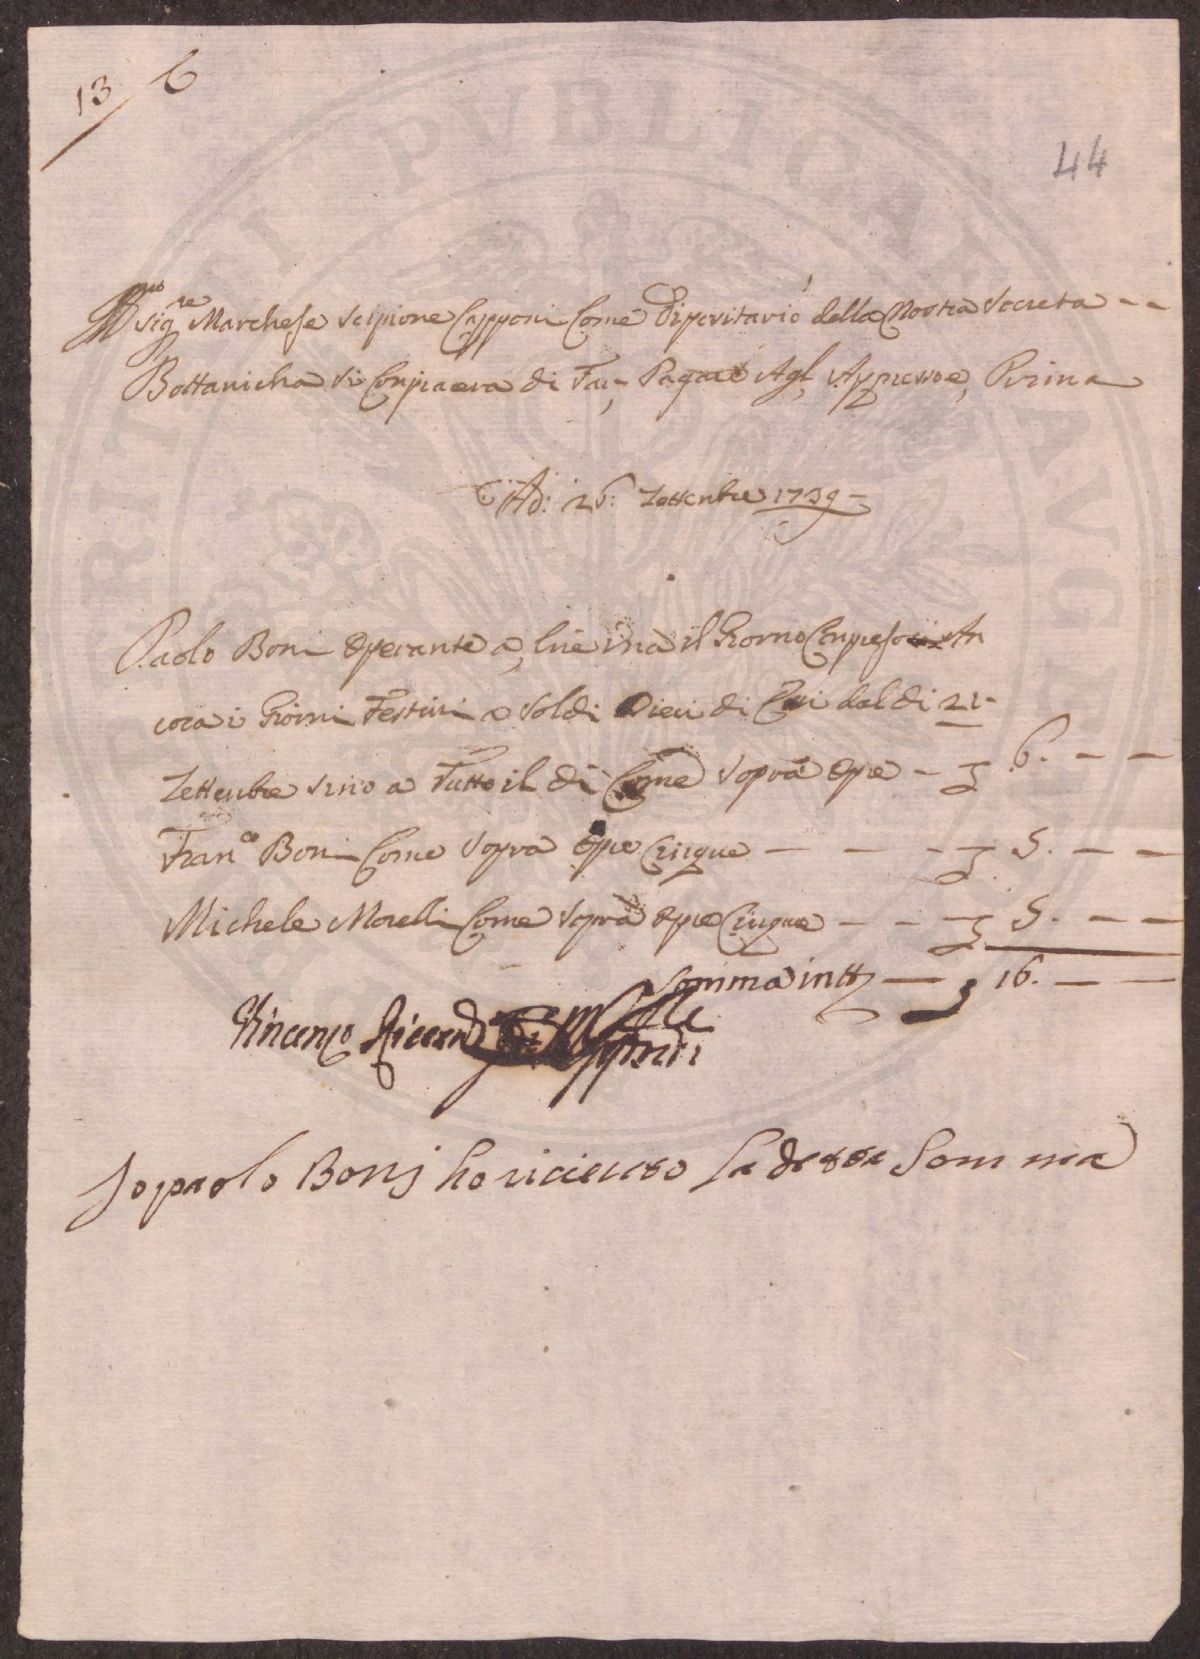 13 6
44
Illmo
Sigre Marchese Scipione Capponi Come Dipositario della Nostra Socreta - -
Bottanicha Si Conpiacera di Far, Pagare Agl, Appresso e, Prima
Ad: 26: Zettenbre 1739 -
Paolo Boni Operante a, lire una il Giorno Conpreso An
cora i Giorni Festivi a Soldi Dieci di Cui dal di 21-
Zettenbre Sino a Tutto il di Come Sopra Opre - £ 6. - -
Franco Boni Come Sopra Opre Cinque - - - £ 5. - -
Michele Morelli Come Sopra Opre Cinque - - £ 5. - -
Somma in tto - £ 16. - -
Vincenzo
Io paolo Bonj ho riceuto la detta Somma
PVBLICAE